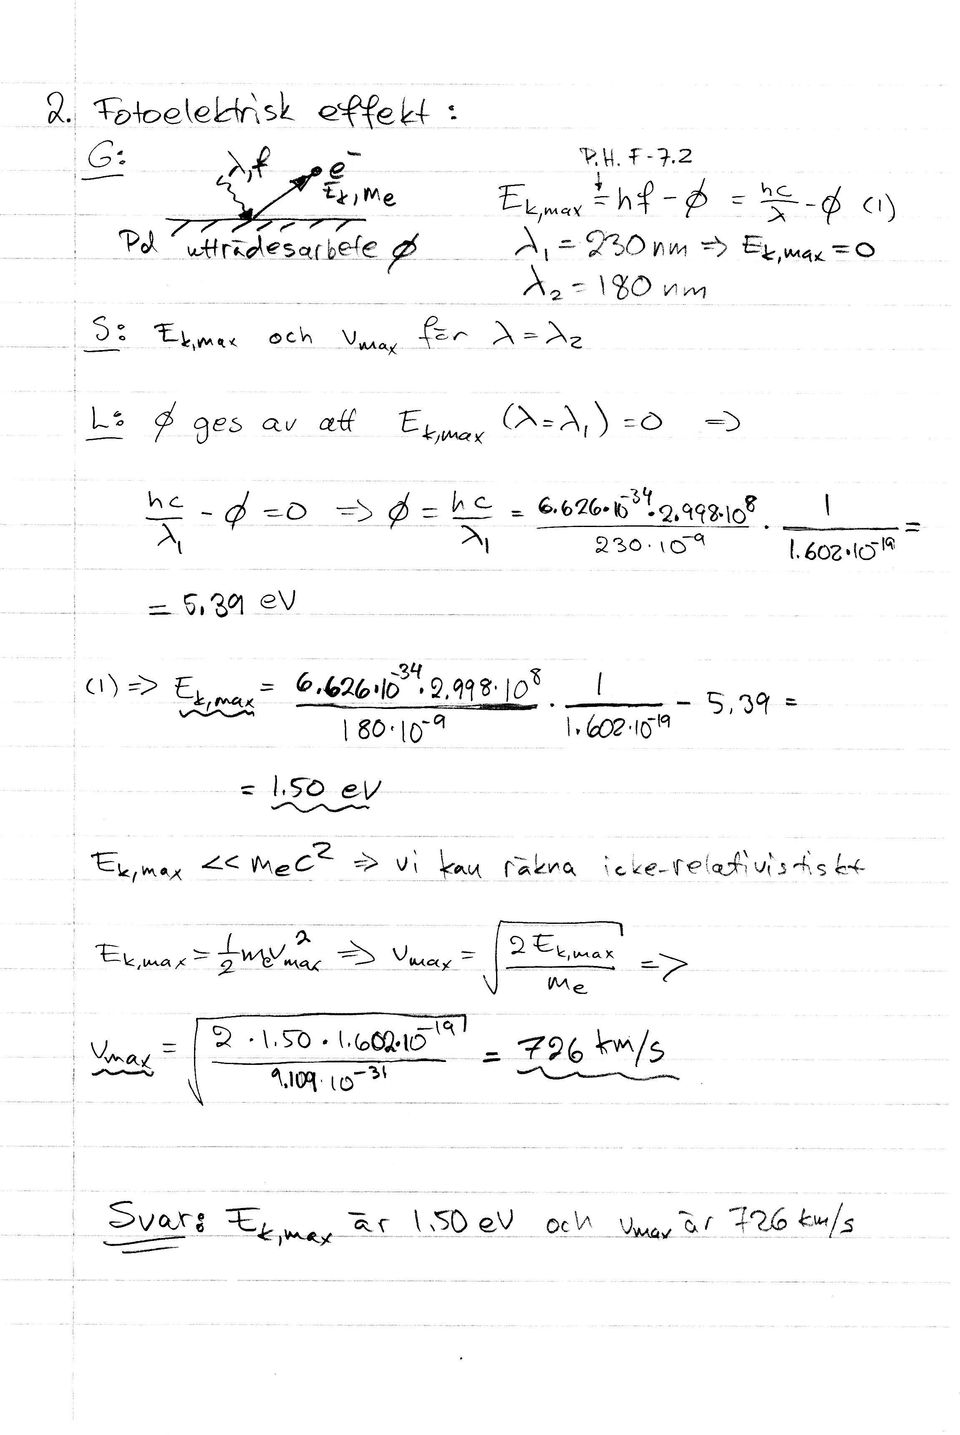 2. Fotoelektrisk effekt:
G:
λ,f e⁻
Ek, me
Pd utträdesarbete ϕ
P.H. F-7.2
Ek,max = hf - ϕ = hc/λ - ϕ (1)
λ₁ = 230 nm => Ek,max = 0
λ₂ = 180 nm
S: Ek,max och vmax för λ = λ₂
L: ϕ ges av att Ek,max (λ=λ₁) = 0 =>
hc/λ₁ - ϕ = 0 => ϕ = hc/λ₁ = 6.626·10⁻³⁴·2.998·10⁸/230·10⁻⁹ · 1/1.602·10⁻¹⁹ =
= 5.39 eV
(1) => Ek,max = 6.626·10⁻³⁴·2.998·10⁸/180·10⁻⁹ · 1/1.602·10⁻¹⁹ - 5.39 =
= 1.50 eV
Ek,max << mec² => vi kan räkna icke-relativistiskt
Ek,max = 1/2 mev²max => vmax = √(2Ek,max/me) =>
vmax = √(2·1.50·1.602·10⁻¹⁹/9.109·10⁻³¹) = 726 km/s
Svar: Ek,max är 1.50 eV och vmax är 726 km/s